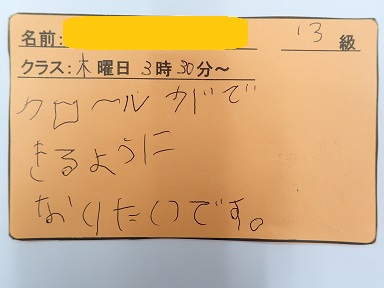 名前: 13 級
クラス: 木 曜日 3 時 30 分～
クロールがで
きるように
なりたいです。